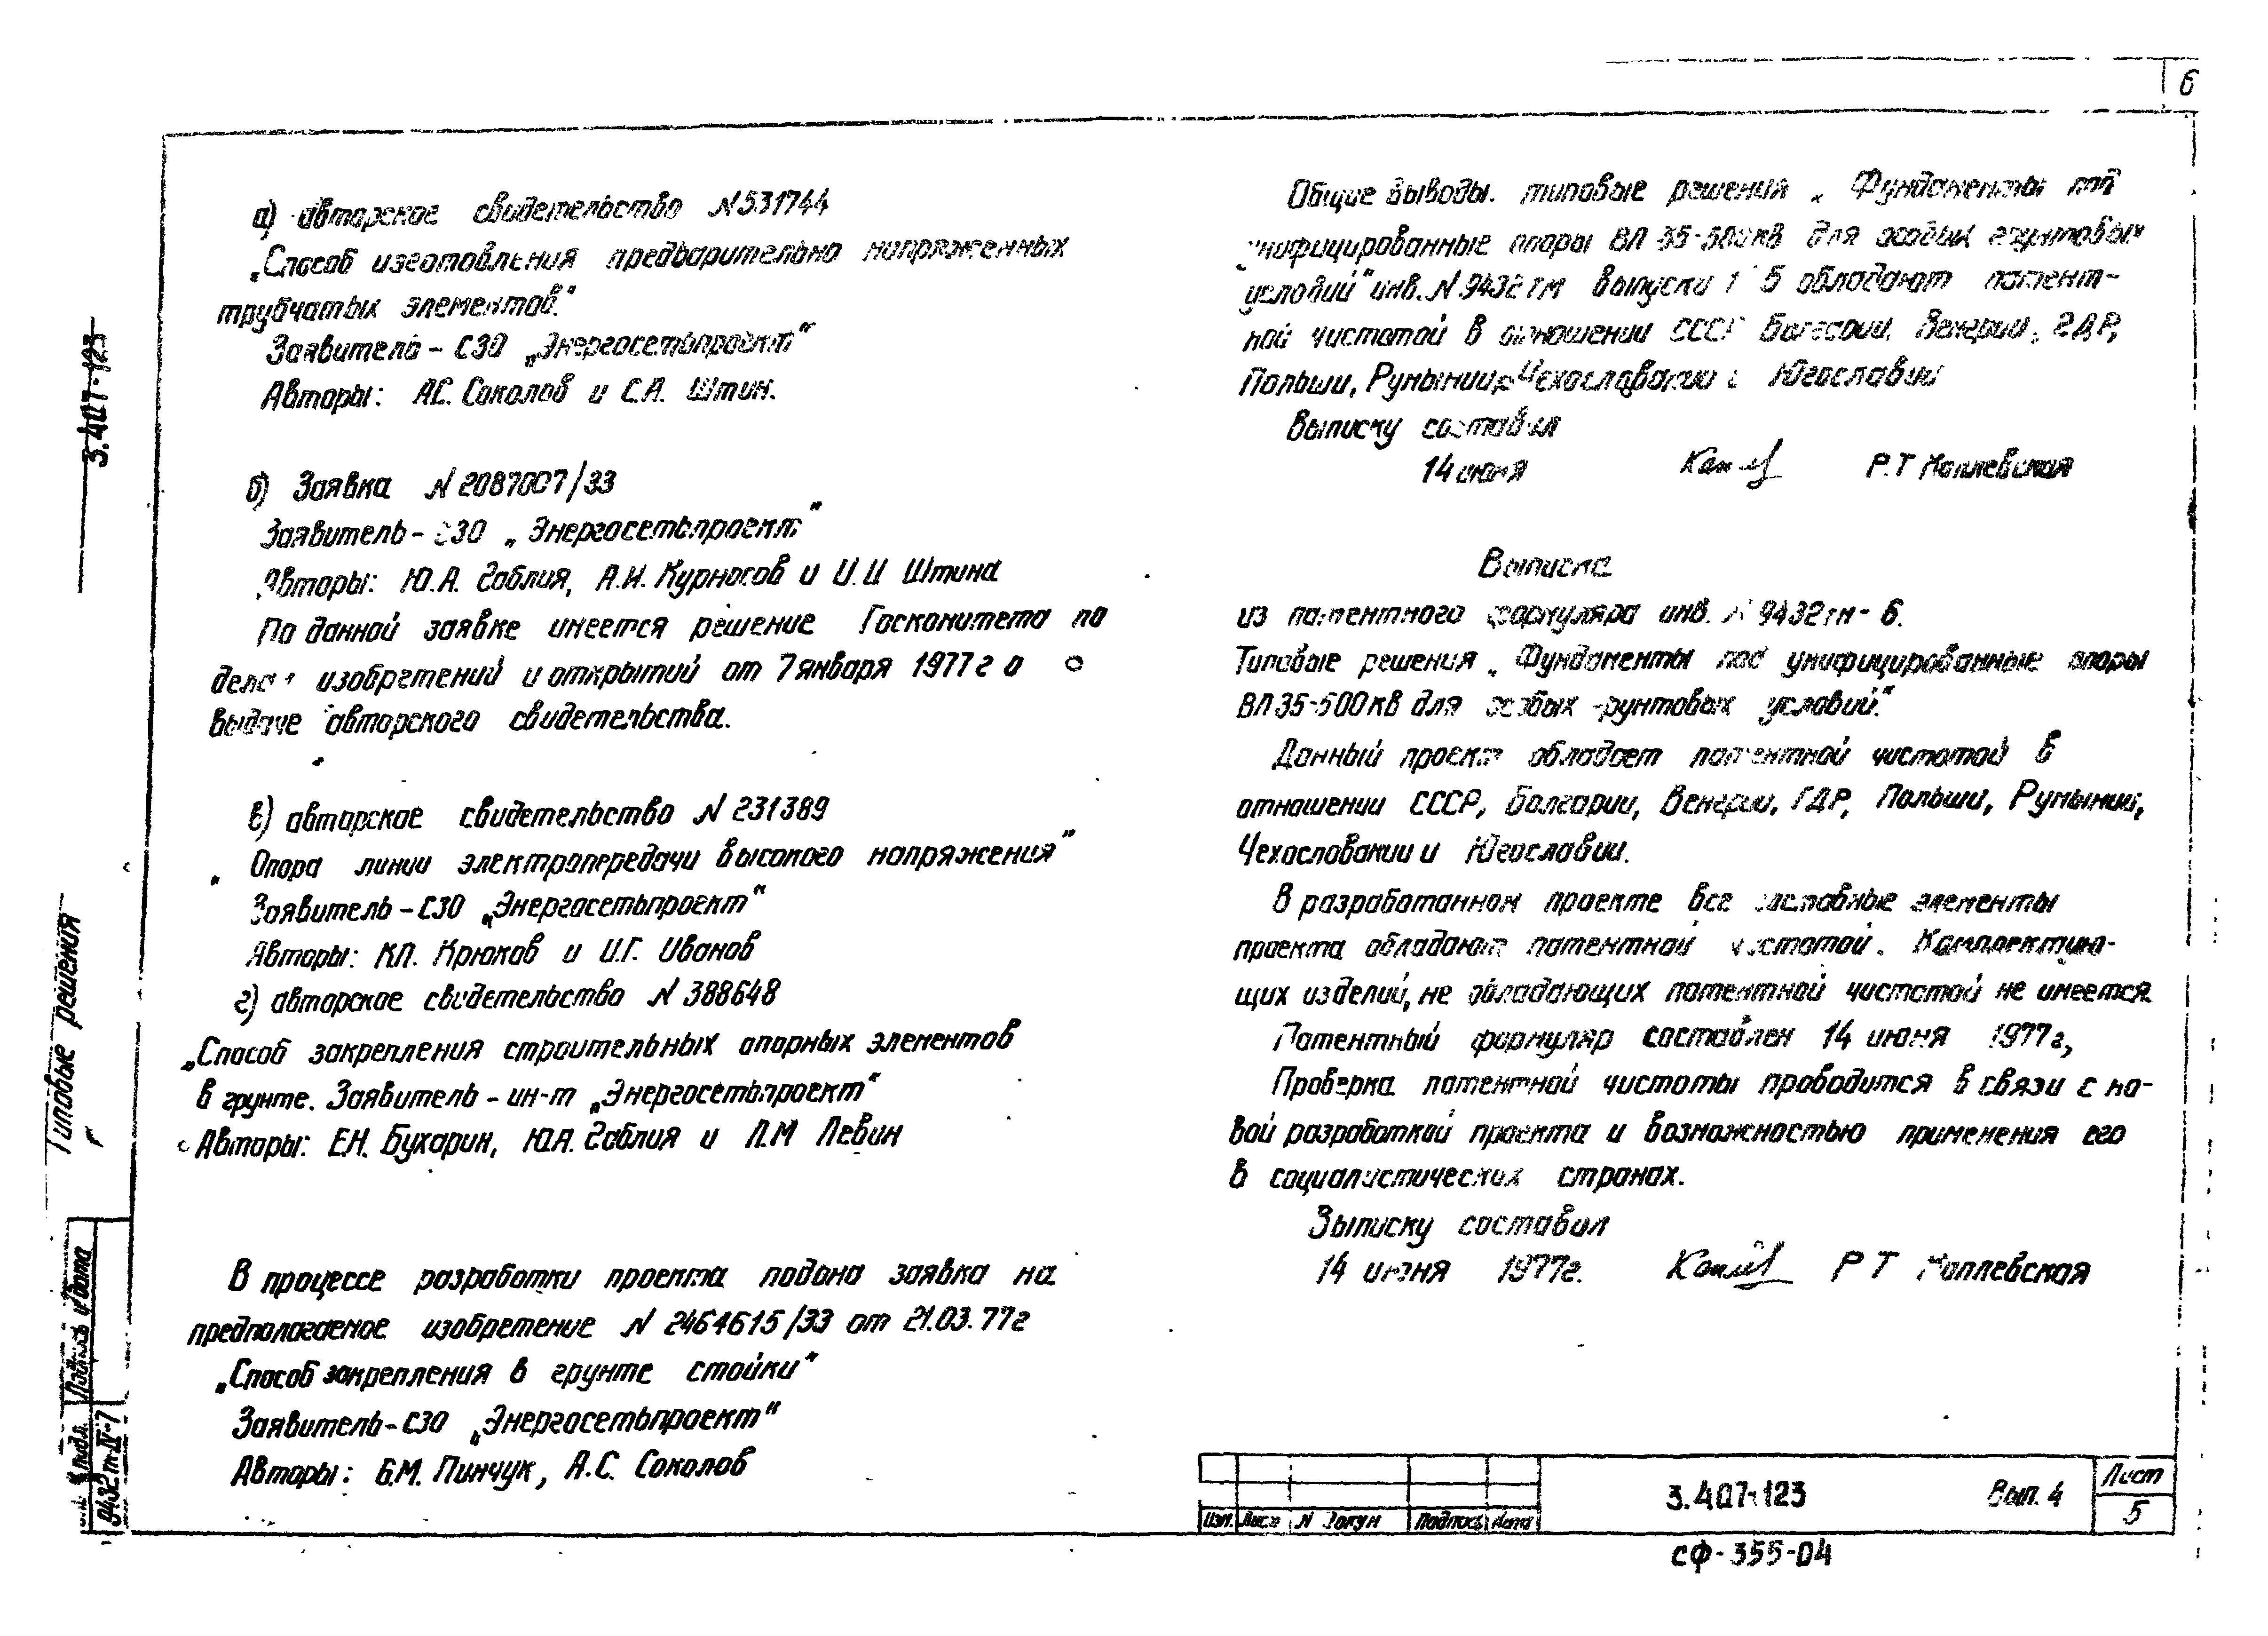 6
а) авторское свидетельство N 531744
„Способ изготовления предварительно напряженных
трубчатых элементов."
Заявитель - СЗО „Энергосетьпроект"
Авторы: А.С. Соколов и С.А. Штин.
б) Заявка N 2087007/33
Заявитель - СЗО „Энергосетьпроект"
Авторы: Ю.А. Габлия, А.И. Курносов и Штина
По данной заявке имеется решение Госкомитета по
делам изобретений и открытий от 7 января 1977 г о
выдаче авторского свидетельства.
в) авторское свидетельство N 231389
„Опора линии электропередачи высокого напряжения"
Заявитель - СЗО „Энергосетьпроект"
Авторы: К.П. Крюков и И.Г. Иванов
г) авторское свидетельство N 388648
„Способ закрепления строительных опорных элементов
в грунте. Заявитель - ин-т „Энергосетьпроект"
Авторы: Е.Н. Бухарин, Ю.А. Габлия и Л.М Левин
В процессе разработки проекта подана заявка на
предполагаемое изобретение N 2464615/33 от 21.03.77г
„Способ закрепления в грунте стойки"
Заявитель - СЗО „Энергосетьпроект"
Авторы: Б.М. Пинчук, А.С. Соколов
Общие выводы. типовые решения „Фундаменты под
унифицированные опоры ВЛ 35-500кВ для особых грунтовых
условий" инв. N 9432тм выпуски 1 5 обладают патент-
ной чистотой в отношении СССР Болгарии, Венгрии, ГДР,
Польши, Румынии, Чехословакии и Югославии
Выписку составил
14 июня Р.Т Каплевская
Выписка
из патентного формуляра инв. N 9432тм-6.
Типовые решения „Фундаменты под унифицированные опоры
ВЛ 35-500кВ для особых грунтовых условий."
Данный проект обладает патентной чистотой в
отношении СССР, Болгарии, Венгрии, ГДР, Польши, Румынии,
Чехословакии и Югославии.
В разработанном проекте все составные элементы
проекта обладают патентной чистотой. Комплектую-
щих изделий, не обладающих патентной чистотой не имеется.
Патентный формуляр составлен 14 июня 1977г,
Проверка патентной чистоты проводится в связи с но-
вой разработкой проекта и возможностью применения его
в социалистических странах.
Выписку составил
14 июня 1977г. Р Т Каплевская
3.407-123
Типовые решения
Подпись и дата
подл.
9432тм-IV-7
Изм. Лист N Докум Подпись Дата
3.407-123 Вып. 4
Лист
5
СФ-355-04